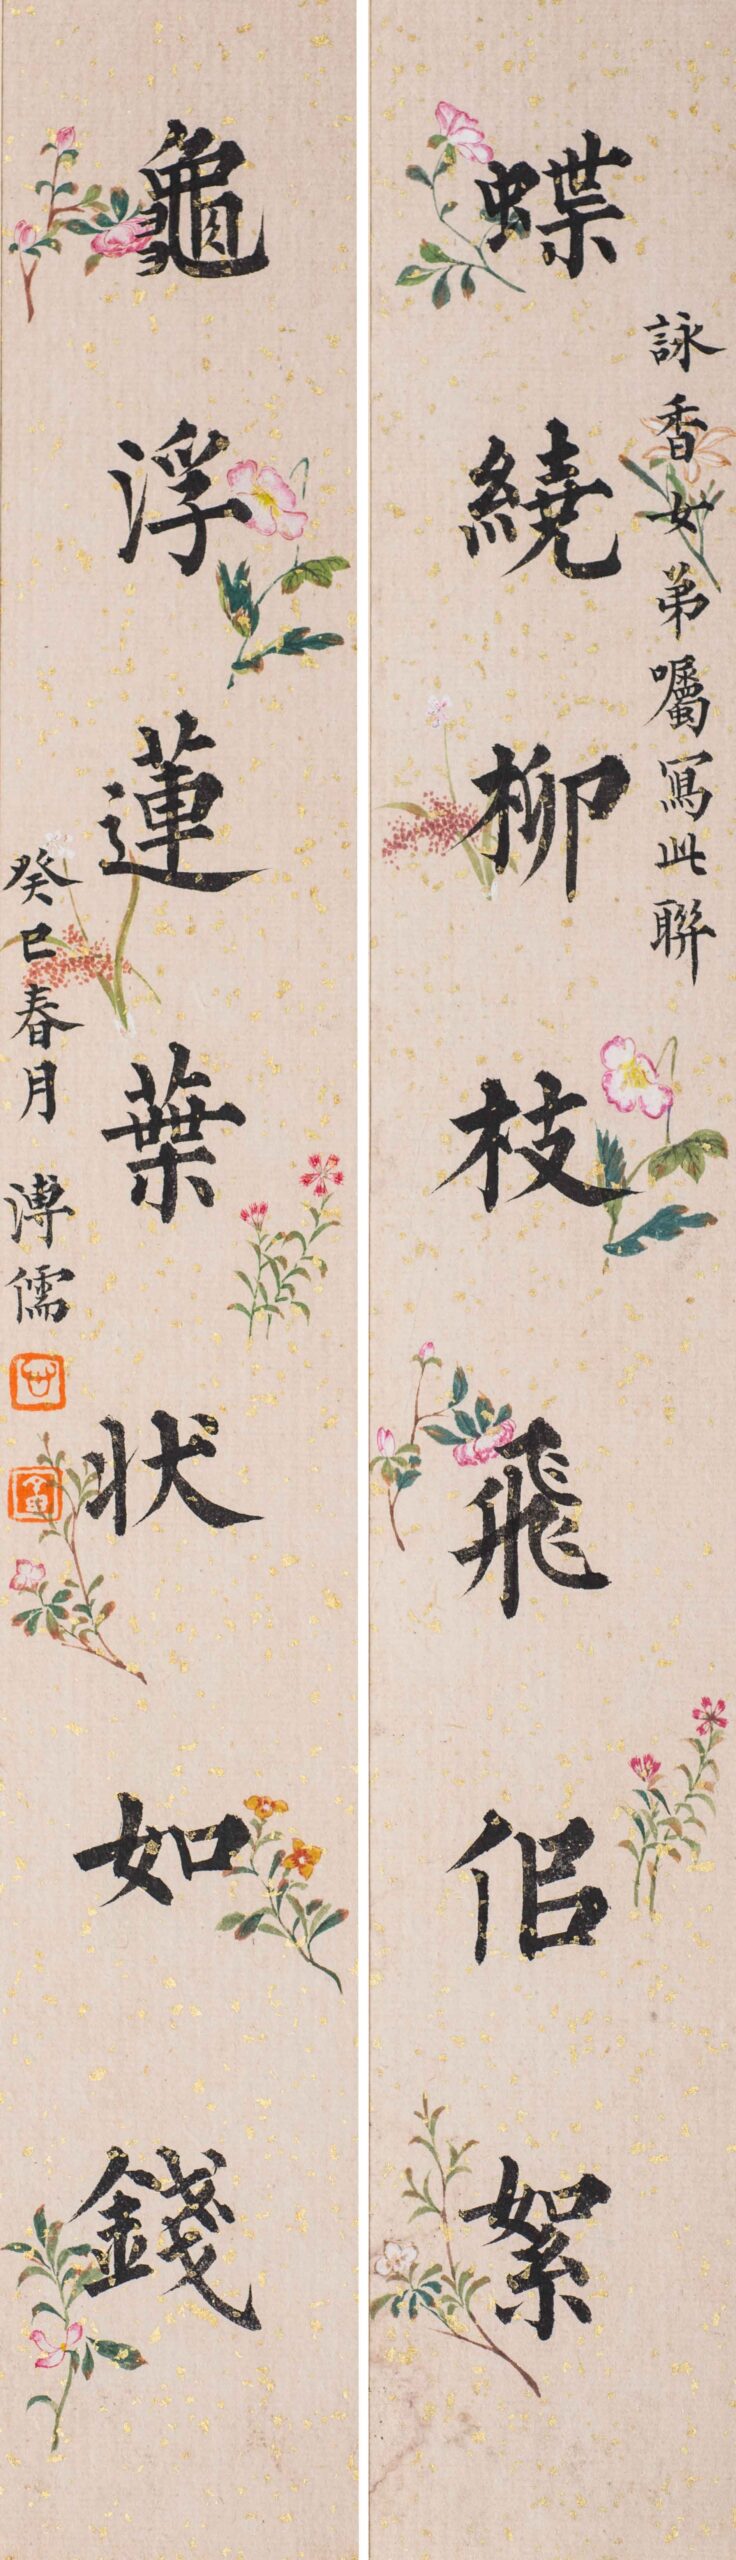 詠香女弟囑寫此聯
蝶繞柳枝飛佀絮
龜浮蓮葉状如錢
癸巳春月 溥儒